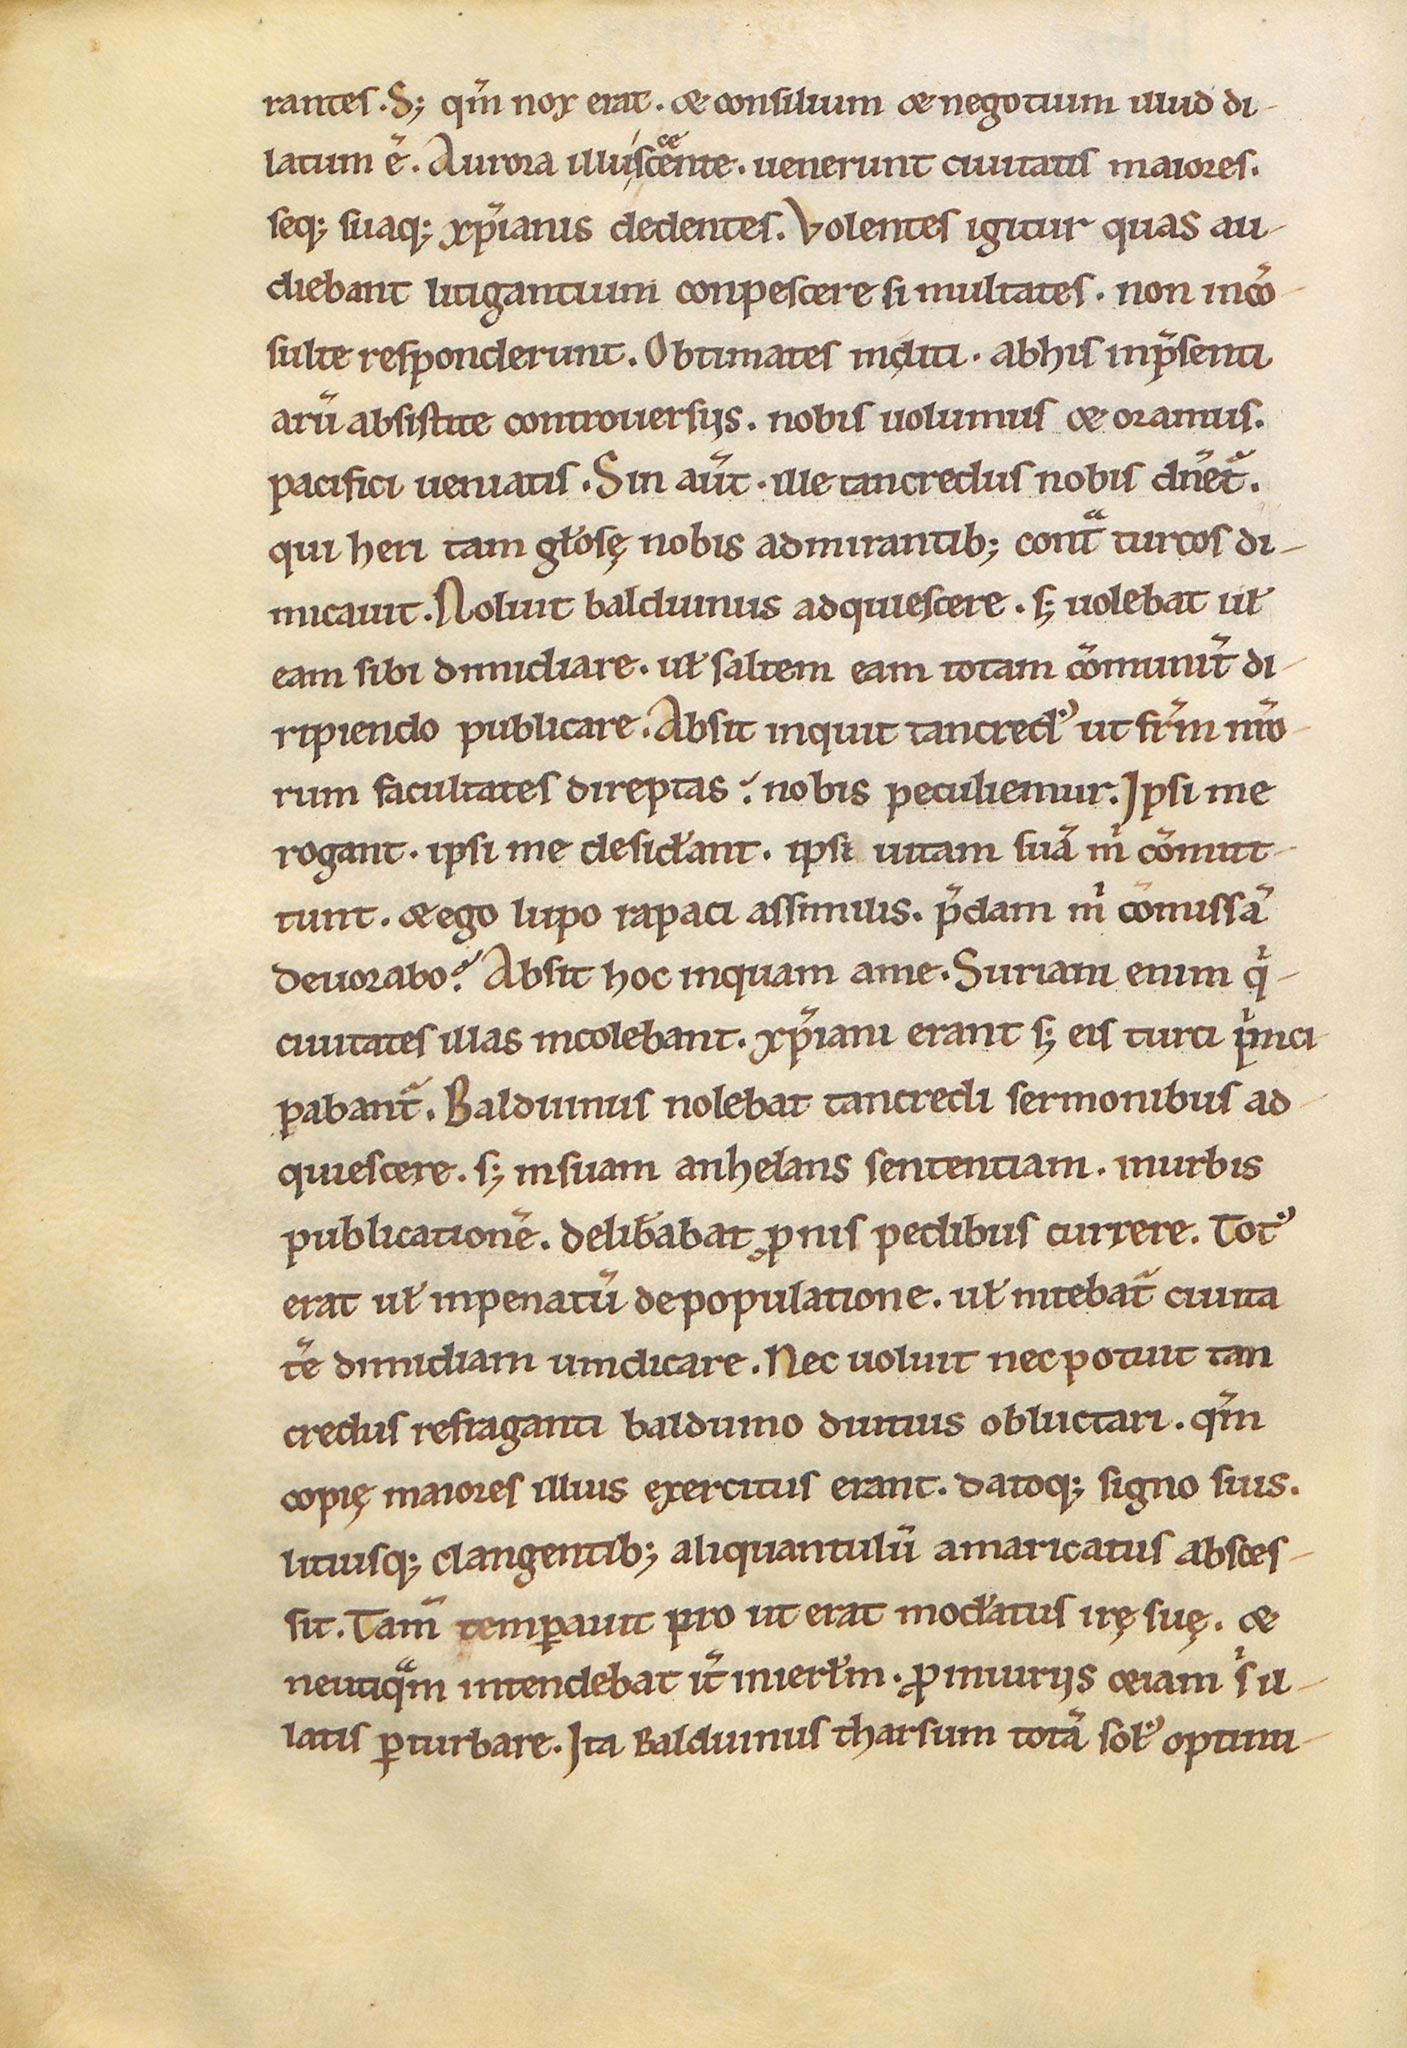 rantes. S; qm̄ nox erat. & consilium & negotium illud di-
latum ē. Aurora illuscente. uenerunt ciuitatis maiores.
seq; suaq; xp̄ianis dedentes. Volentes igitur quas au-
diebant litigantium conpescere si multates. non incō-
sulte responderunt. Obtimates inclitі. abhis inp̄senti
arū absistite controuersijs. nobis uolumus & oramus.
pacifici ueniatis. Sin aūt. ille tancredus nobis dn̄et᷑.
qui heri tam gl̄osę nobis admirantib; contᵃ turcos di-
micauit. Noluit balduinus adquiescere. s; uolebat ul̄
eam sibi dimidiare. ul̄ saltem eam totam cōmunit᷑ di-
ripiendo publicare. Absit inquit tancredꝰ ut fr̄m nr̄o-
rum facultates direptas; nobis peculiemur. Ipsi me
rogant. ipsi me desid̄ant. ipsi uitam suā m̊ cōmit-
tunt. & ego lupo rapaci assimilis. p̄dam m̊ cōmissā
deuorabo? Absit hoc inquam ame. Suriani enim qͥ-
ciuitates illas incolebant. xp̄iani erant s; eis turci pͥnci
pabant᷑. Balduinus nolebat tancredi sermonibus ad-
quiescere. s; insuam anhelans sententiam. inurbis
publicationē. delib̄abat ꝓnis pedibus currere. Totꝰ
erat ul̄ inpenatū depopulatione. ul̄ nitebat᷑ ciuita
tē dimidiam uindicare. Nec uoluit necpotuit tan
credus refraganti balduino diutius obluctari. qm̄
copię maiores illius exercitus erant. datoq; signo suis.
lituisq; clangentib; aliquantulū amaricatus absces-
sit. Tam̄ temꝑauit pro ut erat mod̄atus irę suę. &
neutiqᵃm intendebat it᷑ inierl̄m. ꝓiniurijs &iam sͥ il-
latis ꝑturbare. Ita Balduinus tharsum totā solꝰ optinu-